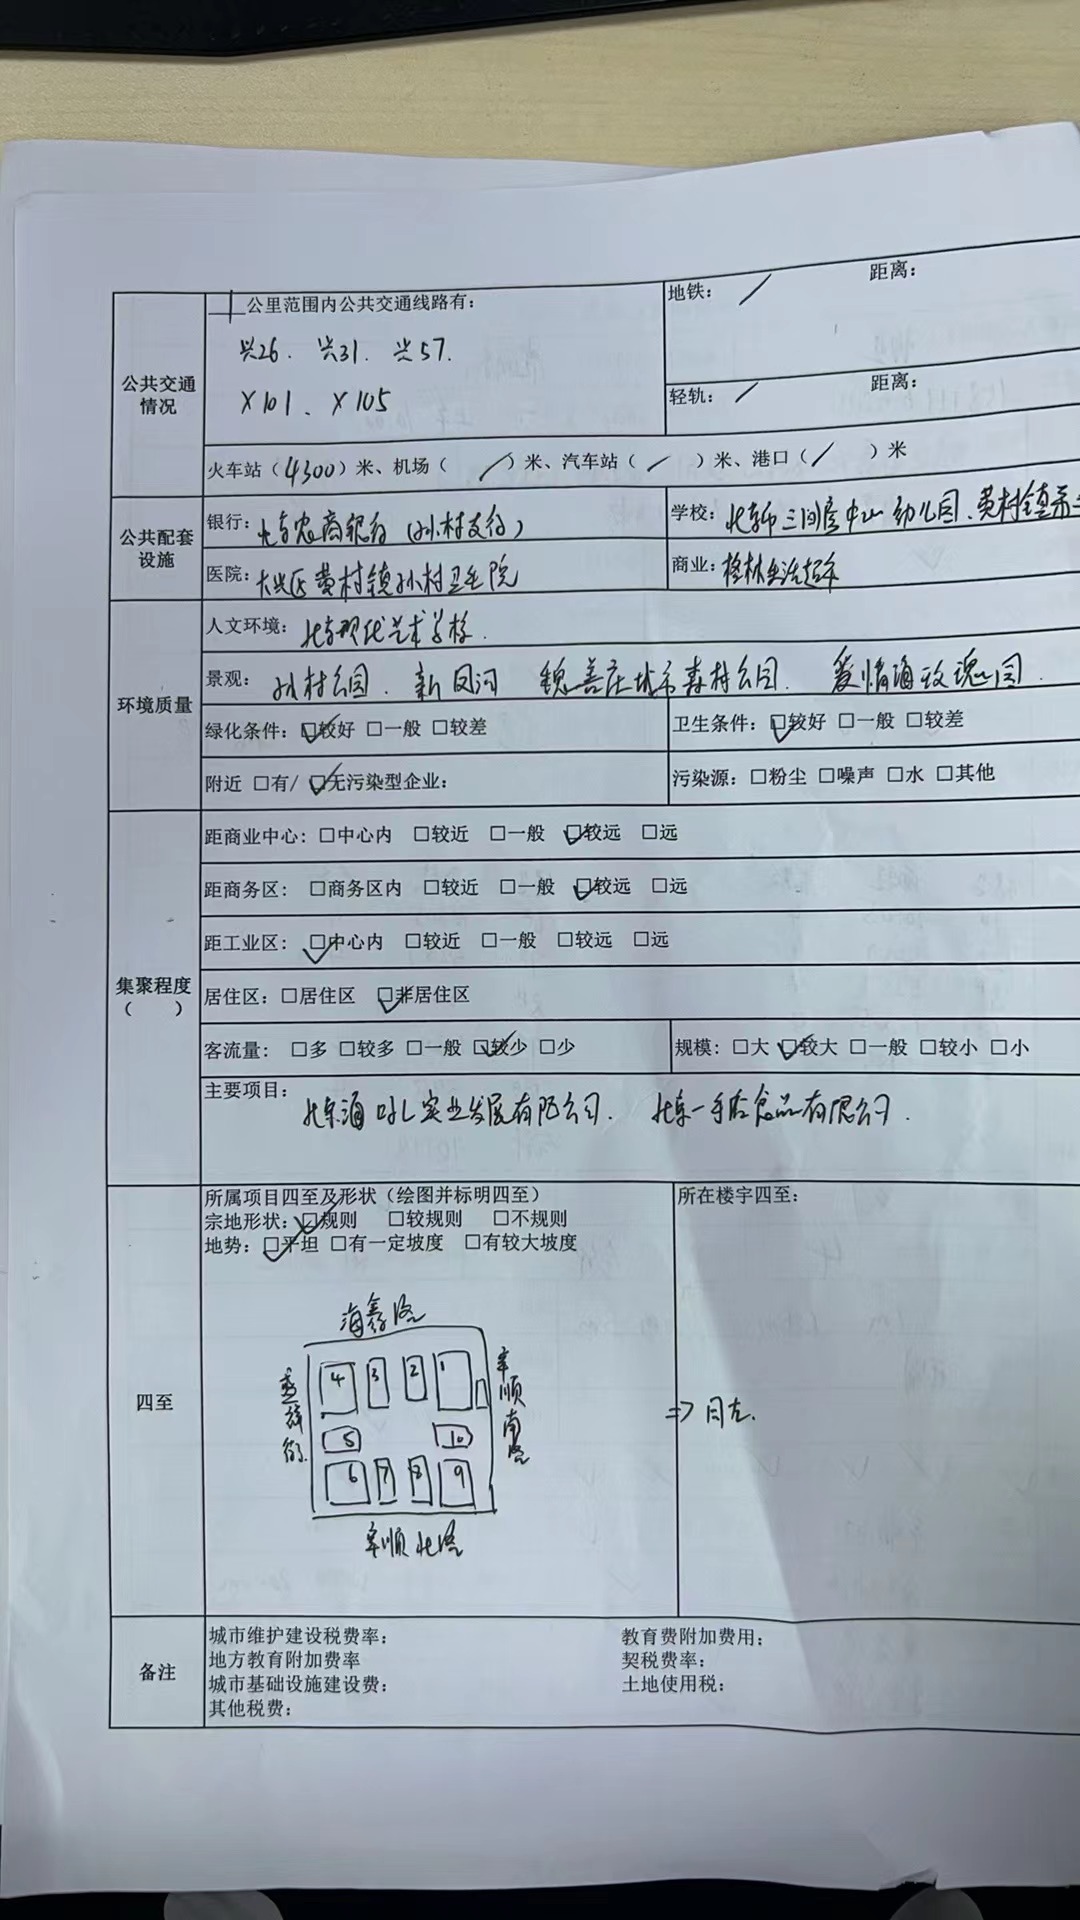 1 公里范围内公共交通线路有：
兴26. 兴31. 兴57.
X101、X105
地铁： / 距离：
轻轨： / 距离：
公共交通情况
火车站（4300）米、机场（ / ）米、汽车站（ / ）米、港口（ / ）米
公共配套设施
银行：北京农商银行（孙村支行）
学校：北京市三间房中山幼儿园、黄村镇第二
医院：大兴区黄村镇孙村卫生院
商业：格林生活超市
环境质量
人文环境：北京现代艺术学校.
景观：孙村公园. 新凤河 魏善庄城市森林公园. 爱情海玫瑰园.
绿化条件：☑较好 □一般 □较差
卫生条件：☑较好 □一般 □较差
附近 □有/ ☑无污染型企业：
污染源：□粉尘 □噪声 □水 □其他
集聚程度（ ）
距商业中心：□中心内 □较近 □一般 ☑较远 □远
距商务区：□商务区内 □较近 □一般 ☑较远 □远
距工业区：☑中心内 □较近 □一般 □较远 □远
居住区：□居住区 ☑非居住区
客流量：□多 □较多 □一般 ☑较少 □少
规模：□大 ☑较大 □一般 □较小 □小
主要项目：
实业发展有限公司. 北京一手店食品有限公司.
四至
所属项目四至及形状（绘图并标明四至）
宗地形状：☑规则 □较规则 □不规则
地势：☑平坦 □有一定坡度 □有较大坡度
所在楼宇四至：
海鑫路
4 3 2 1
5 10
6 7 8 9
南路
北路
⇒ 同左.
备注
城市维护建设税费率：
教育费附加费用；
地方教育附加费率
契税费率：
城市基础设施建设费：
土地使用税：
其他税费：